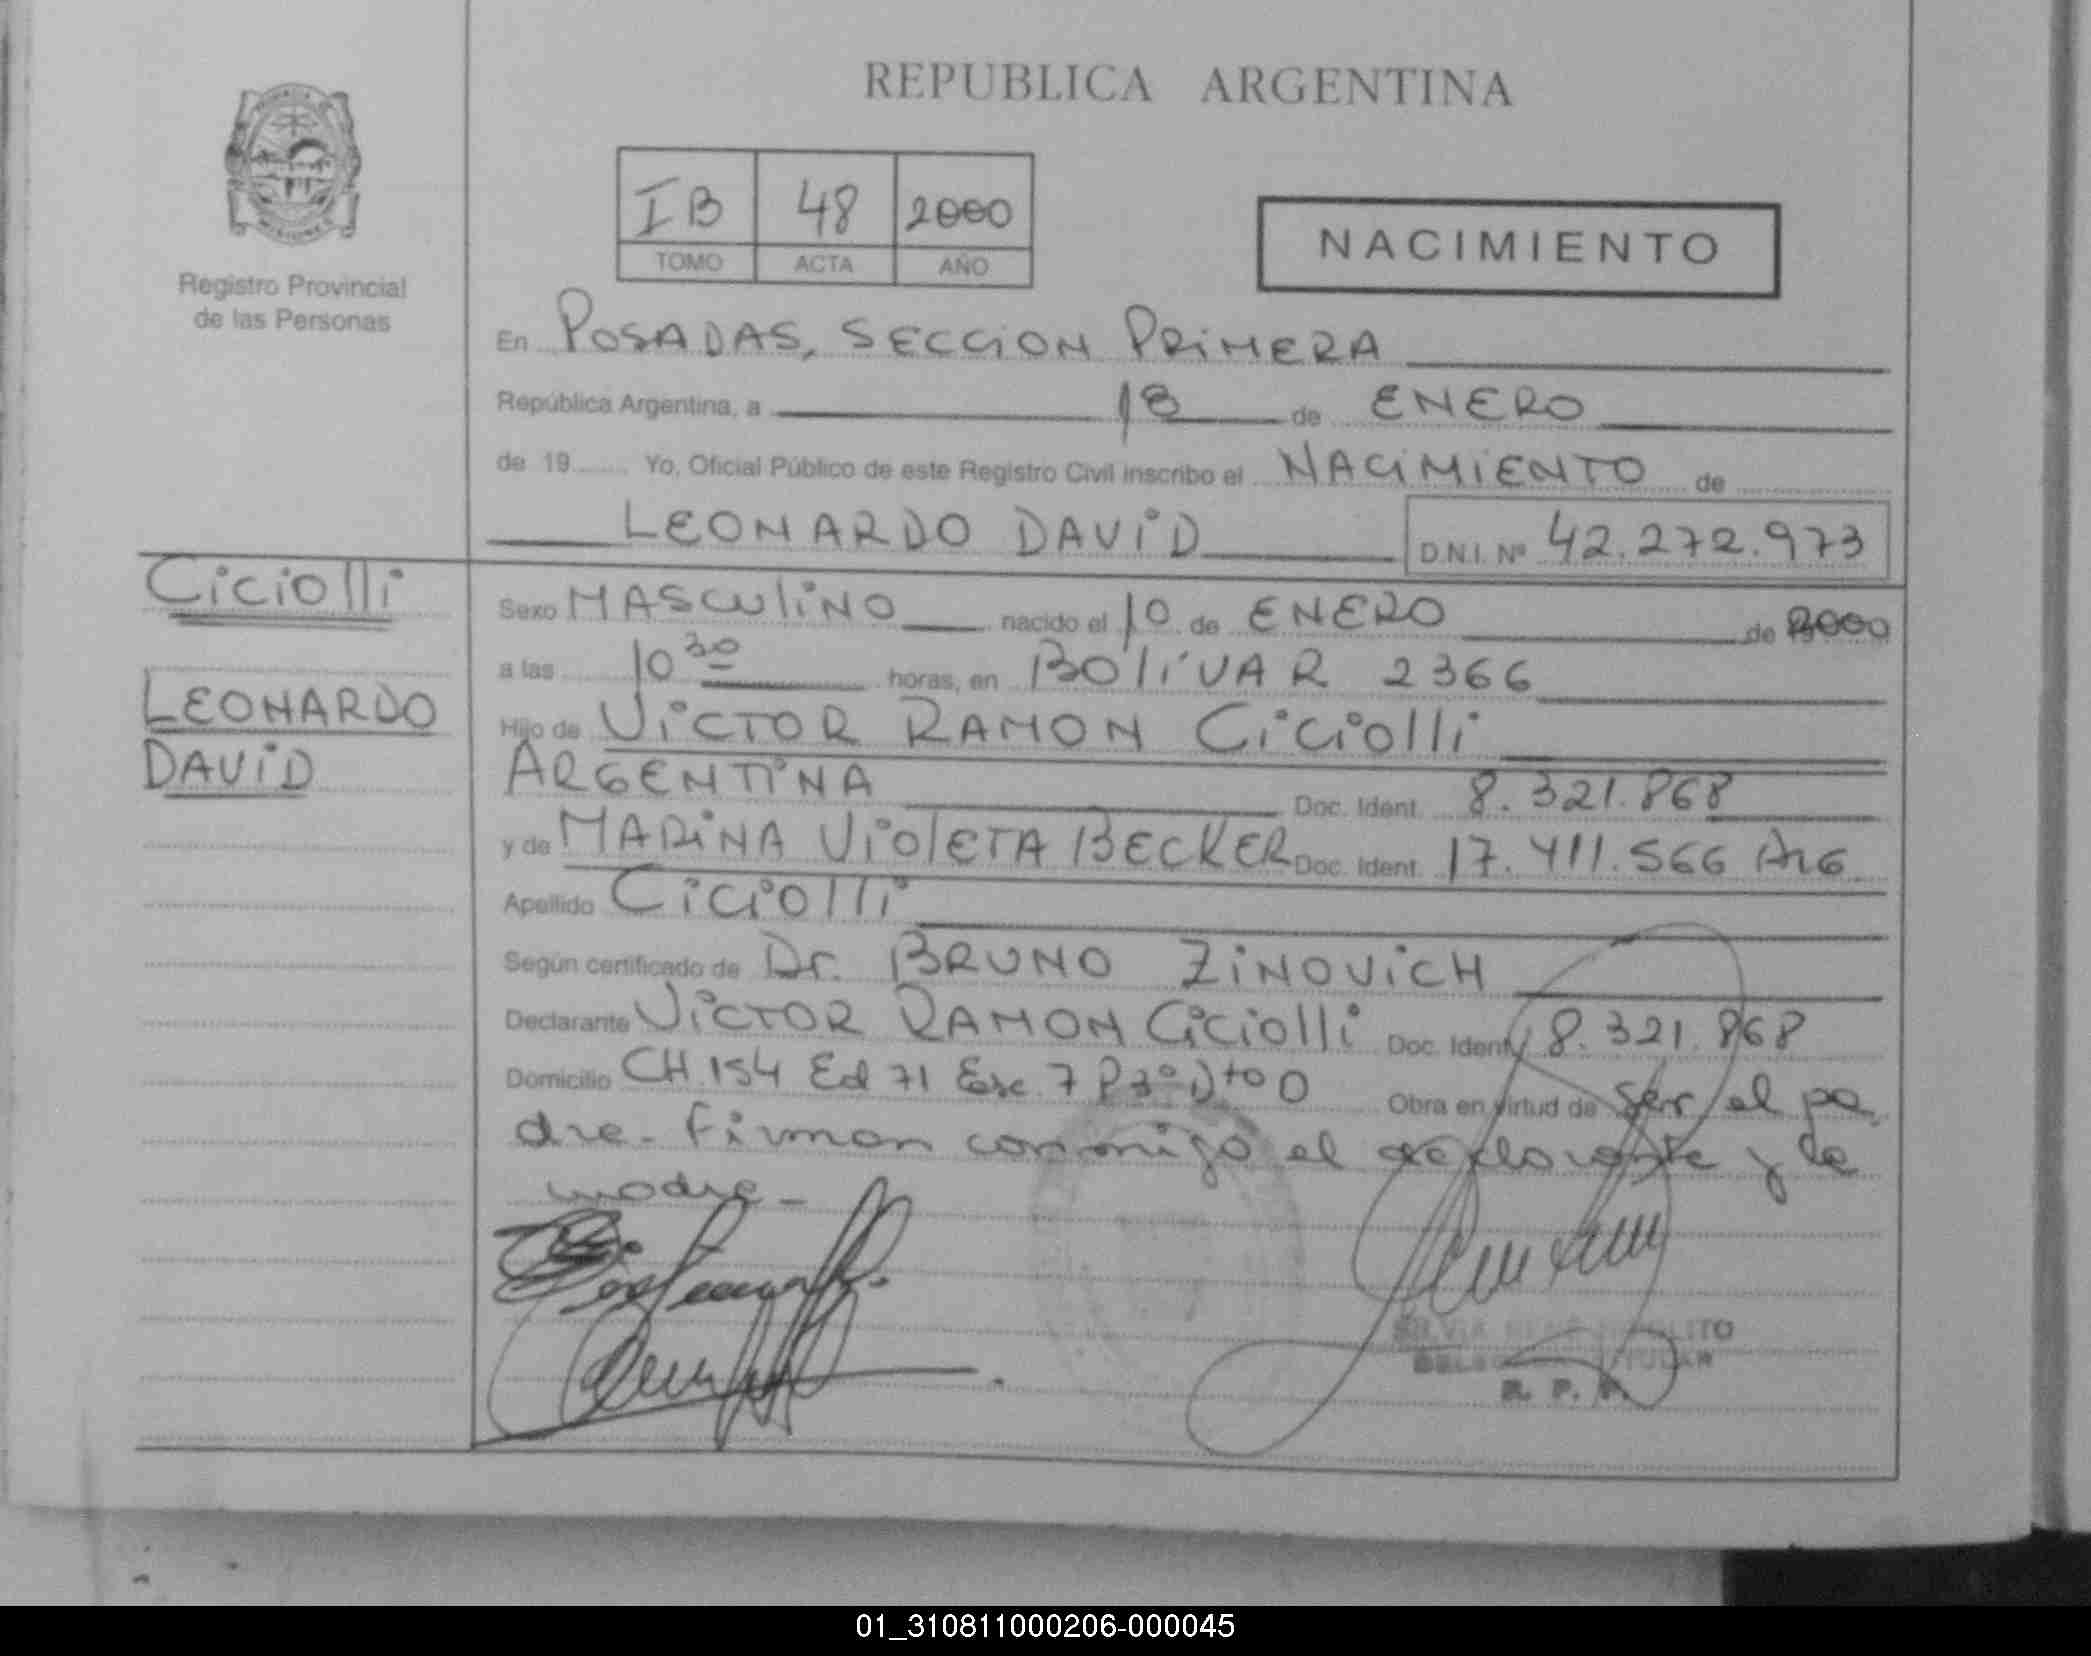 REPUBLICA ARGENTINA
IB 48 2000
TOMO ACTA AÑO
NACIMIENTO
Registro Provincial
de las Personas
En POSADAS, SECCION PRIMERA
República Argentina, a 18 de ENERO
de 19 Yo, Oficial Público de este Registro Civil inscribo el NACIMIENTO de
LEONARDO DAVID D.N.I. Nº 42.272.973
Ciciolli
LEONARDO
DAVID
Sexo MASCULINO nacido el 10 de ENERO de 2000
a las 10 30 horas, en BOLIVAR 2366
Hijo de VICTOR RAMON Ciciolli
ARGENTINA Doc. Ident. 8.321.868
y de MARINA VIOLETA BECKER Doc. Ident. 17.411.566 Arg
Apellido Ciciolli
Según certificado de Dr. BRUNO ZINOVICH
Declarante VICTOR RAMON Ciciolli Doc. Ident. 8.321.868
Domicilio CH.154 Ed 71 Esc. 7 P3º Dto D Obra en virtud de ser el pa
dre - Firman conmigo el declarante y la
madre -
DELEGADA TITULAR
R. P. P.
01_310811000206-000045